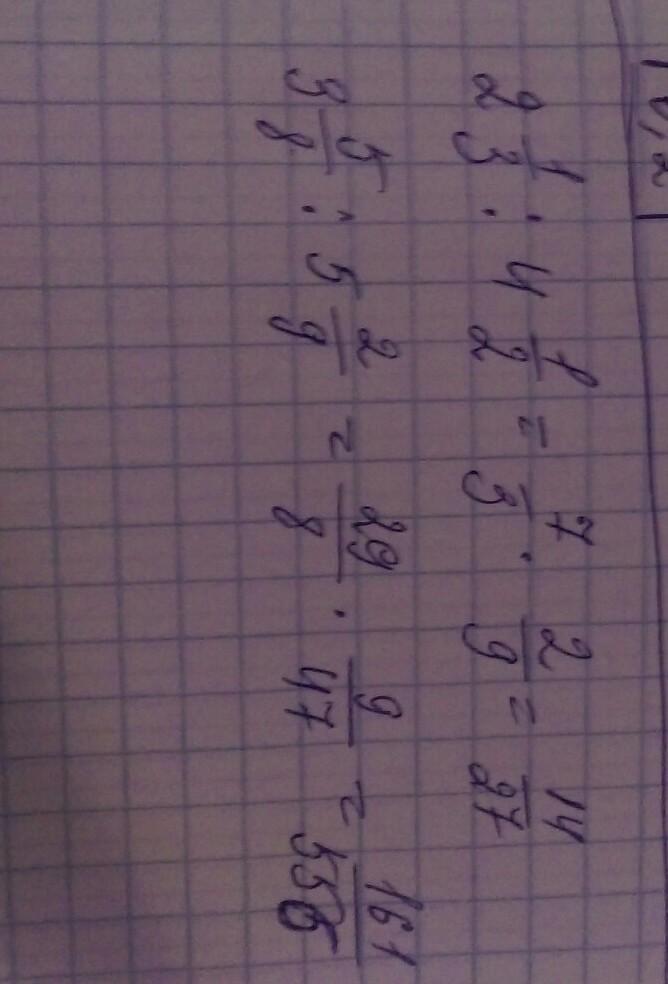 2 1/3 : 4 1/2 = 7/3 · 2/9 = 14/27
3 5/8 : 5 2/9 = 29/8 · 9/47 = 161/556